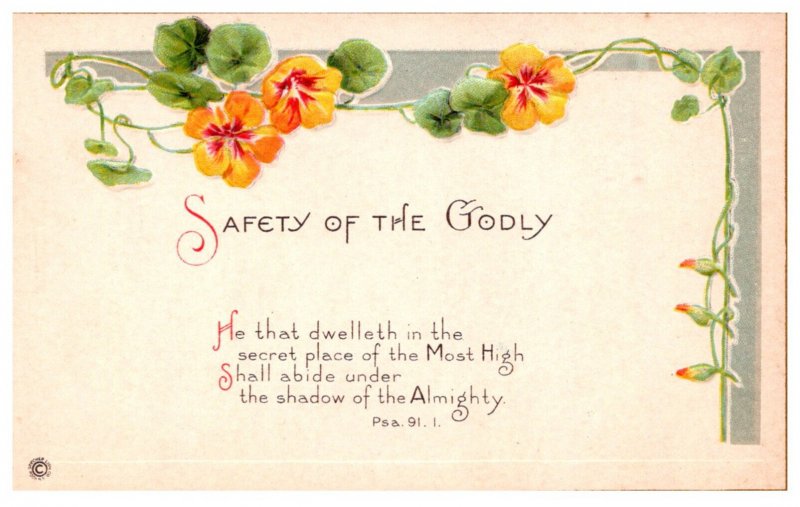 Safety of the Godly
He that dwelleth in the
secret place of the Most High
Shall abide under
the shadow of the Almighty.
Psa. 91. 1.
©